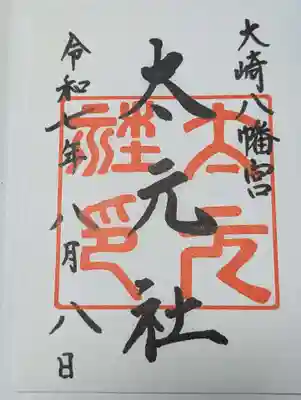 大崎八幡宮
太元社
令和七年八月八日
太元社印